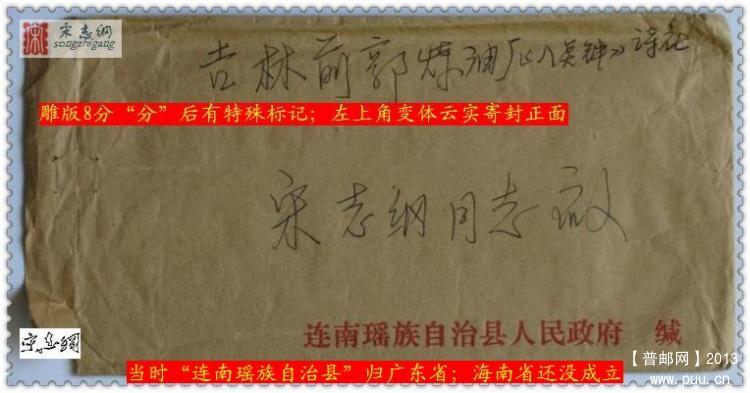 宋志纲
songzhigang
吉林前郭炼油厂《晨钟》诗社
雕版8分“分”后有特殊标记；左上角变体云实寄封正面
宋志纲同志 启
连南瑶族自治县人民政府 缄
宋志纲
当时“连南瑶族自治县”归广东省；海南省还没成立
【普邮网】2013
www.puu.cn